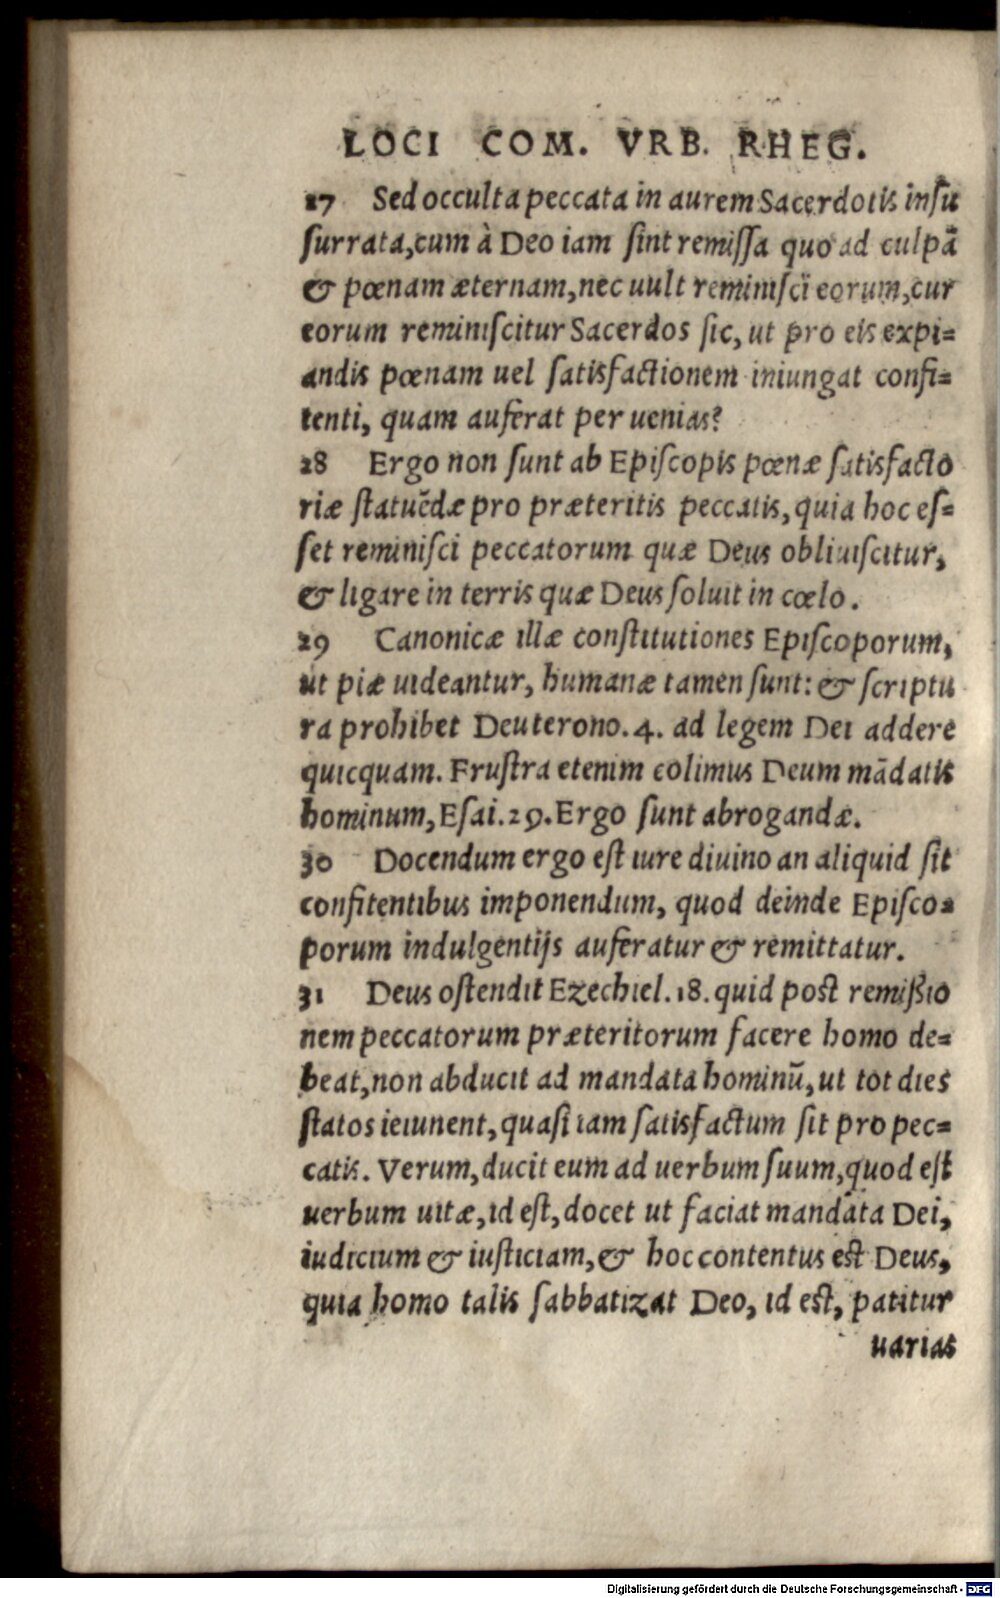 LOCI COM. VRB. RHEG.
27 Sed occulta peccata in aurem Sacerdotis insu
surrata, cum à Deo iam sint remissa quo ad culpã
& pœnam æternam, nec uult reminisci eorum, cur
eorum reminiscitur Sacerdos sic, ut pro eis expi=
andis pœnam uel satisfactionem iniungat confi=
tenti, quam auferat per uenias?
28 Ergo non sunt ab Episcopis pœnæ satisfacto
riæ statuẽdæ pro præteritis peccatis, quia hoc es=
set reminisci peccatorum quæ Deus obliuiscitur,
& ligare in terris quæ Deus soluit in cœlo.
29 Canonicæ illæ constitutiones Episcoporum,
ut piæ uideantur, humanæ tamen sunt: & scriptu
ra prohibet Deuterono. 4. ad legem Dei addere
quicquam. Frustra etenim colimus Deum mãdatis
hominum, Esai. 29. Ergo sunt abrogandæ.
30 Docendum ergo est iure diuino an aliquid sit
confitentibus imponendum, quod deinde Episco=
porum indulgentijs auferatur & remittatur.
31 Deus ostendit Ezechiel. 18. quid post remißio
nem peccatorum præteritorum facere homo de=
beat, non abducit ad mandata hominũ, ut tot dies
statos ieiunent, quasi iam satisfactum sit pro pec=
catis. Verum, ducit eum ad uerbum suum, quod est
uerbum uitæ, id est, docet ut faciat mandata Dei,
iudicium & iusticiam, & hoc contentus est Deus,
quia homo talis sabbatizat Deo, id est, patitur
uarias
Digitalisierung gefördert durch die Deutsche Forschungsgemeinschaft - DFG